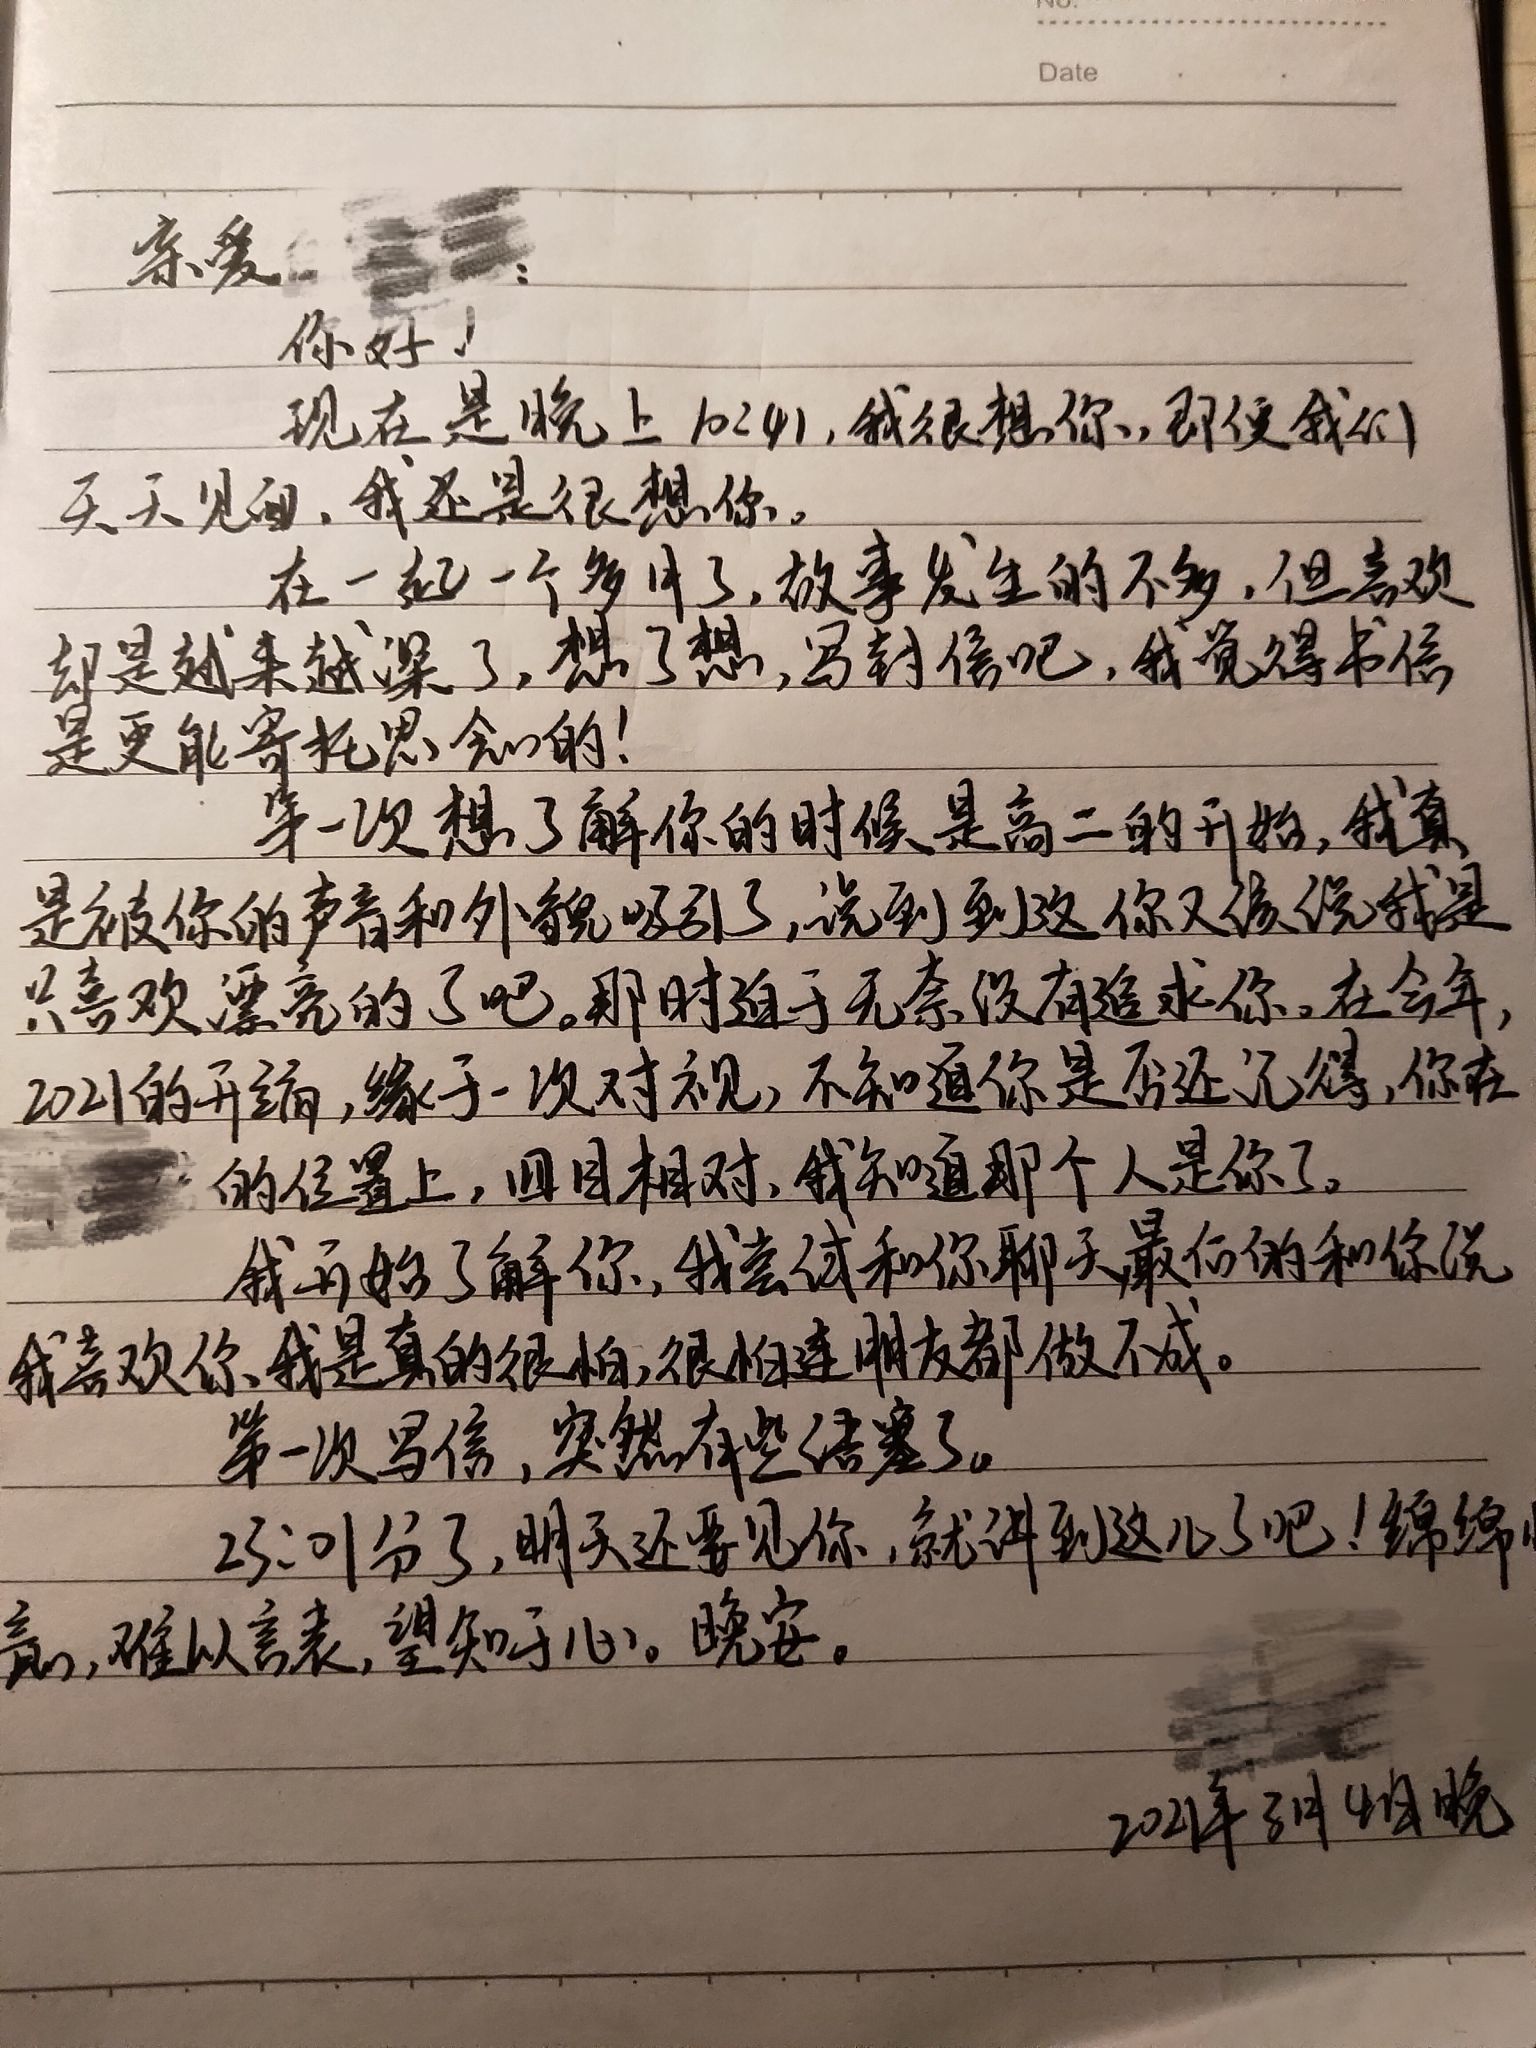 No.
Date
亲爱
:
你好!
现在是晚上10:41,我很想你,即便我们
天天见面,我还是很想你。
在一起一个多月了,故事发生的不多,但喜欢
却是越来越深了,想了想,写封信吧,我觉得书信
是更能寄托思念的!
第一次想了解你的时候是高二的开始,我真
是被你的声音和外貌吸引了,说到到这你又该说我是
只喜欢漂亮的了吧。那时迫于无奈没有追求你。在今年,
2021的开端,缘于一次对视,不知道你是否还记得,你在
的位置上,四目相对,我知道那个人是你了。
我开始了解你,我尝试和你聊天,最后的和你说
我喜欢你、我是真的很怕,很怕连朋友都做不成。
第一次写信,突然有些语塞了。
23:01分了,明天还要见你,就讲到这儿了吧!绵绵
意,难以言表,望知于心。晚安。
2021年3月4日晚